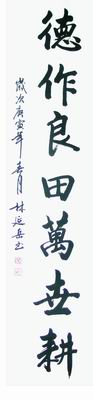 德作良田萬世耕
歲次庚寅年春月林延岳書